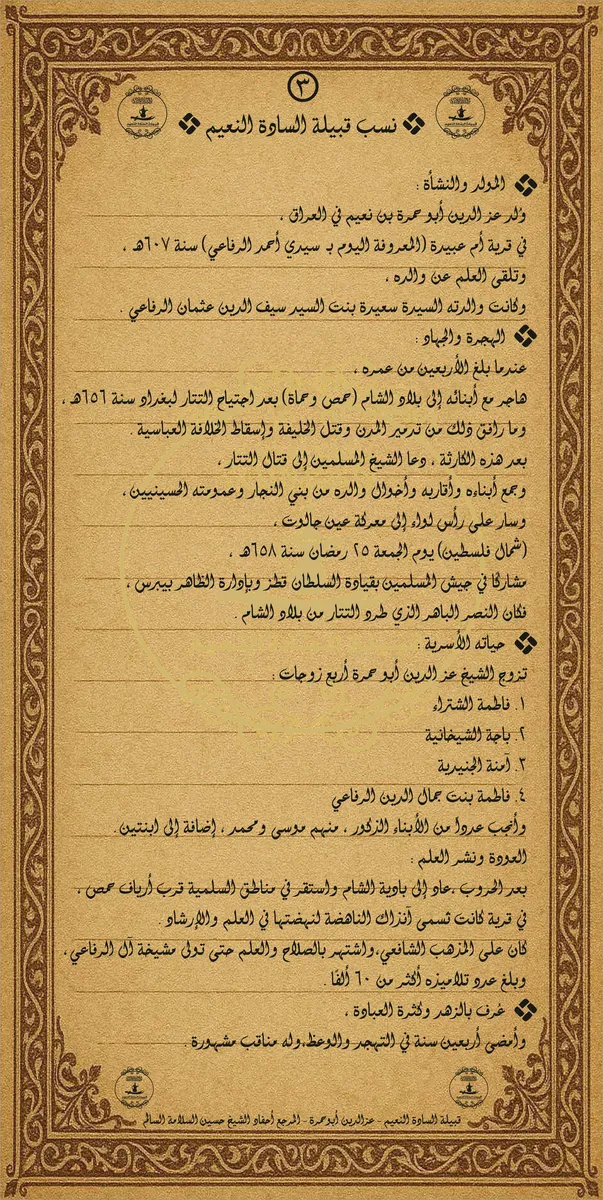 ٣
نسب قبيلة السادة النعيم
المولد والنشأة :
وُلد عز الدين أبو حمرة بن نعيم في العراق ،
في قرية أم عبيدة (المعروفة اليوم بـ سيدي أحمد الرفاعي) سنة ٦٠٧هـ ،
وتلقى العلم عن والده ،
وكانت والدته السيدة سعيدة بنت السيد سيف الدين عثمان الرفاعي .
الهجرة والجهاد :
عندما بلغ الأربعين من عمره ،
هاجر مع أبنائه إلى بلاد الشام (حمص وحماة) بعد اجتياح التتار لبغداد سنة ٦٥٦هـ ،
وما رافق ذلك من تدمير المدن وقتل الخليفة وإسقاط الخلافة العباسية .
بعد هذه الكارثة ، دعا الشيخ المسلمين إلى قتال التتار ،
وجمع أبناءه وأقاربه وأخوال والده من بني النجار وعمومته الحسينيين ،
وسار على رأس لواء إلى معركة عين جالوت ،
(شمال فلسطين) يوم الجمعة ٢٥ رمضان سنة ٦٥٨هـ ،
مشاركًا في جيش المسلمين بقيادة السلطان قطز وبإدارة الظاهر بيبرس ،
فكان النصر الباهر الذي طرد التتار من بلاد الشام .
حياته الأسرية :
تزوج الشيخ عز الدين أبو حمرة أربع زوجات :
١. فاطمة الشتراء
٢. باجة الشيخانية
٣. آمنة الجنيدية
٤. فاطمة بنت جمال الدين الرفاعي
وأنجب عدداً من الأبناء الذكور ، منهم موسى ومحمد ، إضافة إلى ابنتين.
العودة ونشر العلم :
بعد الحروب ،عاد إلى بادية الشام واستقر في مناطق السلمية قرب أرياف حمص ،
في قرية كانت تسمى آنزاك الناهضة لنهضتها في العلم والإرشاد .
كان على المذهب الشافعي،واشتهر بالصلاح والعلم حتى تولى مشيخة آل الرفاعي،
وبلغ عدد تلاميذه أكثر من ٦٠ ألفًا .
عُرف بالزهد وكثرة العبادة ،
وأمضى أربعين سنة في التهجد والوعظ،وله مناقب مشهورة .
قبيلة السادة النعيم - عزالدين أبوحمرة - المرجع أحفاد الشيخ حسين السلامة السالم